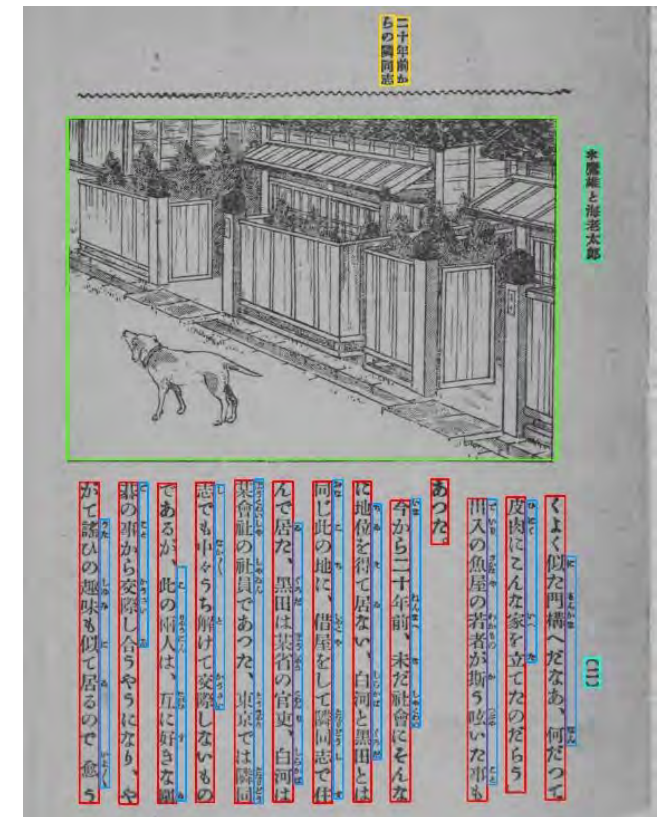 鷹雄と海老太郎
(二)
二十年前か
らの隣同志
くよく似た門構へだなあ、何だつて
皮肉にこんな家を立てたのだらう」
出入の魚屋の若者が斯う呟いた事も
あつた。
今から二十年前、未だ社會にそんな
に地位を得て居ない、白河と黒田とは
同じ此の地に、借屋をして隣同志で住
んで居た、黒田は某省の官吏、白河は
某會社の社員であつた、東京では隣同
志でも中々うち解けて交際しないもの
であるが、此の兩人は、互に好きな圍
碁の事から交際し合うやうになり、や
がて謠ひの趣味も似て居るので 愈う